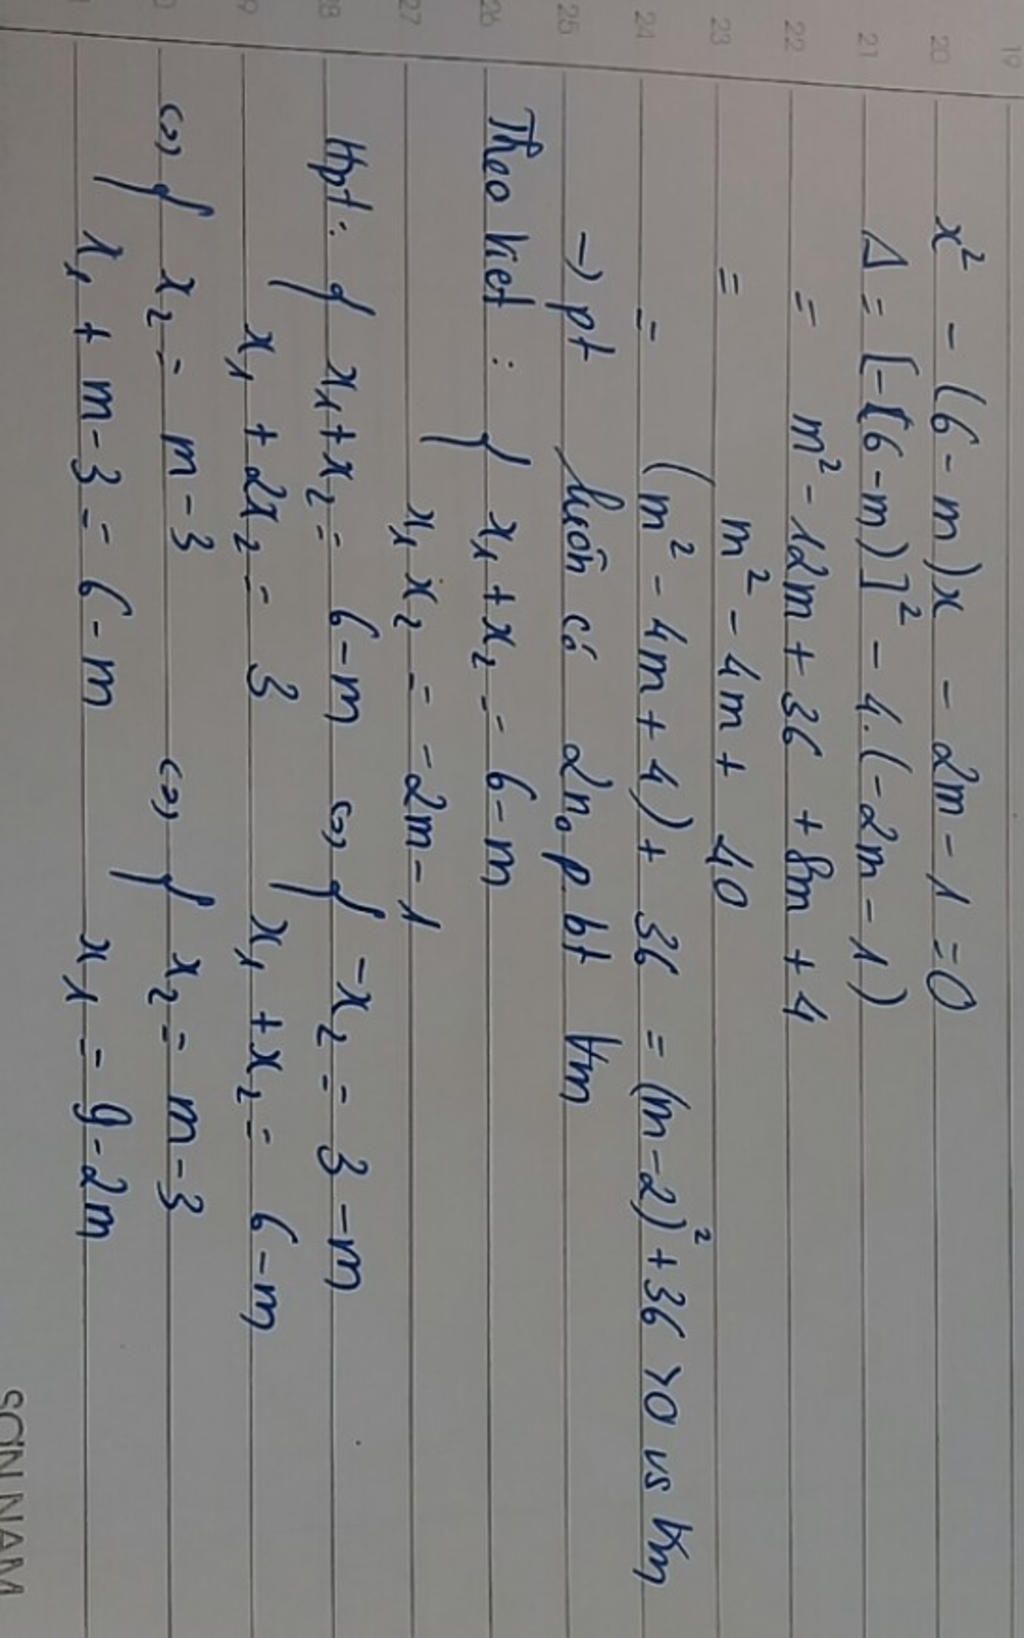 19 20 21 22 23 24 25 26 27 28 29
x² - (6 - m)x - 2m - 1 = 0
Δ = [-(6 - m)]² - 4.(-2m - 1)
= m² - 12m + 36 + 8m + 4
= m² - 4m + 40
= (m² - 4m + 4) + 36 = (m - 2)² + 36 > 0 vs ∀m
→ pt luôn có 2 n₀ p.bt ∀m
Theo Viet : { x₁ + x₂ = 6 - m
x₁ x₂ = -2m - 1
Hpt : { x₁ + x₂ = 6 - m <=> { -x₂ = 3 - m
x₁ + 2x₂ = 3 x₁ + x₂ = 6 - m
<=> { x₂ = m - 3 <=> { x₂ = m - 3
x₁ + m - 3 = 6 - m x₁ = 9 - 2m
SƠN NAM